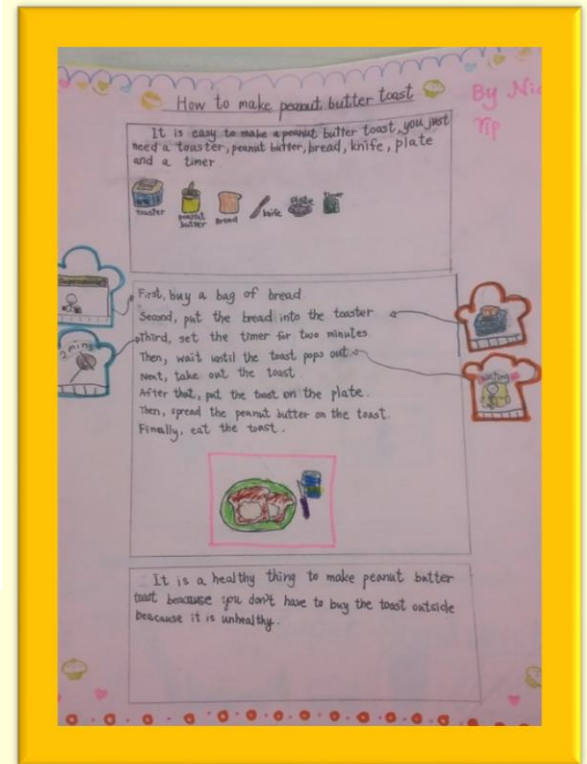 How to make peanut butter toast
By Nic
Yip
It is easy to make a peanut butter toast, you just
need a toaster, peanut butter, bread, knife, plate
and a timer
toaster
peanut
butter
Bread
knife
plate
timer
Supermarket
First, buy a bag of bread
Second, put the bread into the toaster
2 mins
Third, set the timer for two minutes
Then, wait until the toast pops out
waiting
Next, take out the toast.
After that, put the toast on the plate.
Then, spread the peanut butter on the toast.
Finally, eat the toast.
It is a healthy thing to make peanut butter
toast beacause you don't have to buy the toast outside
beacause it is unhealthy.